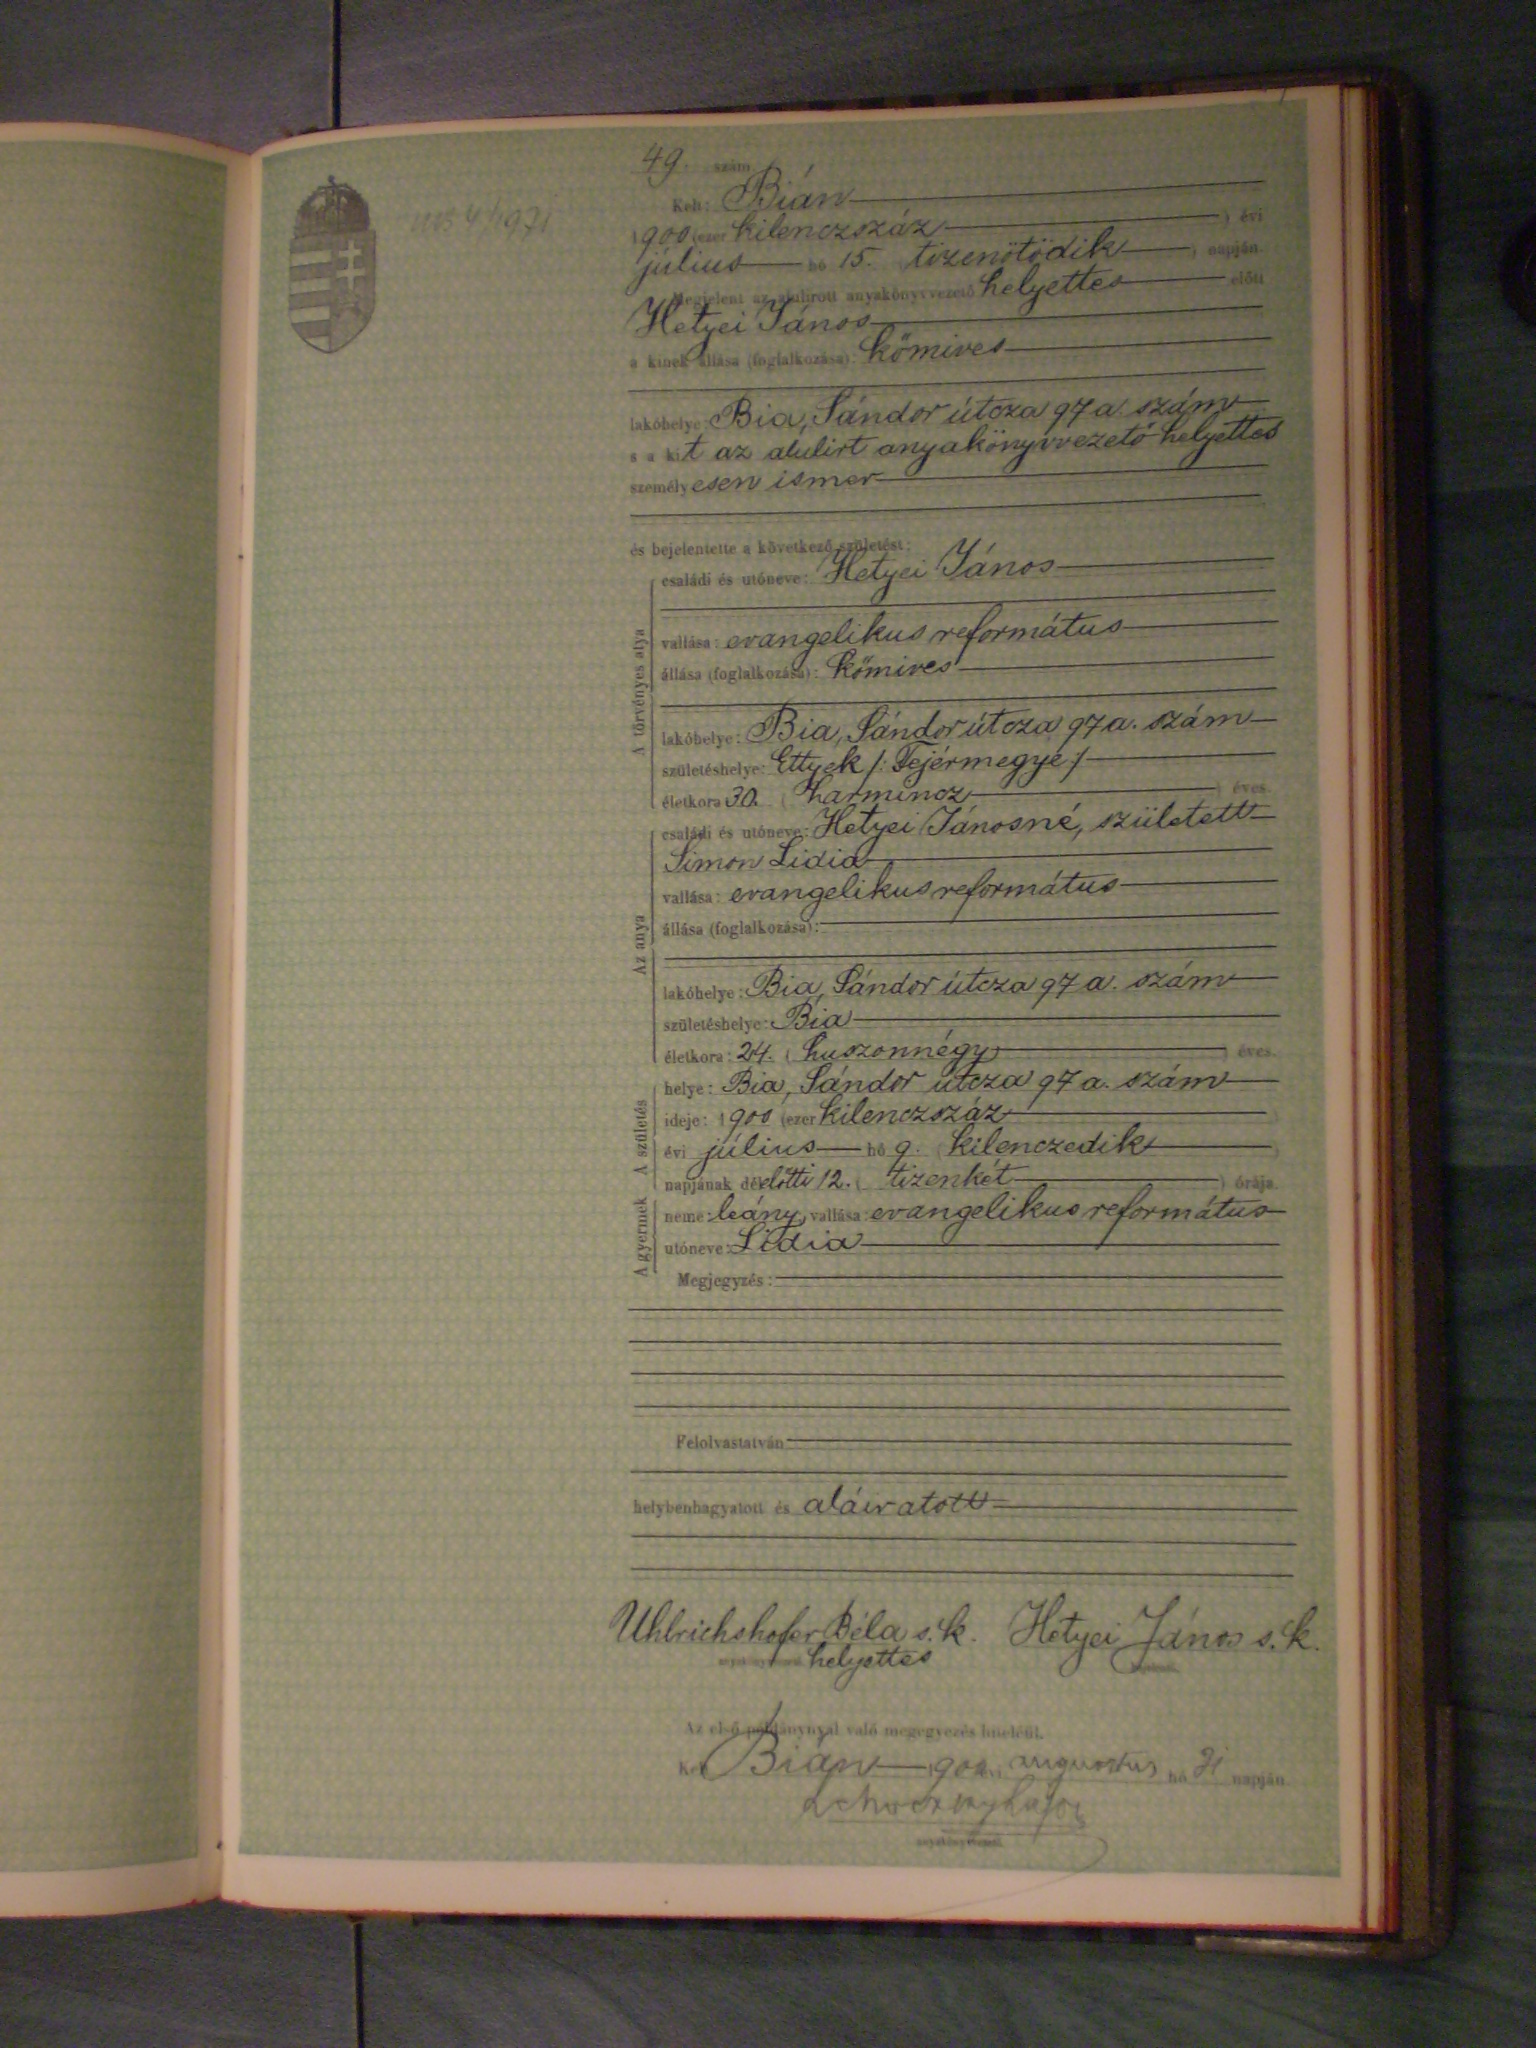 49. szám
Kelt: Bián
1900 (ezer kilenczszáz ) évi
július hó 15. ( tizenötödik ) napján.
Megjelent az alulirott anyakönyvvezető helyettes előtt
Hetyei János
a kinek állása (foglalkozása): kőmives
lakóhelye: Bia, Sándor útcza 97 a. szám
s a kit az alulirt anyakönyvvezető helyettes
személyesen ismer
és bejelentette a következő születést:
A törvényes atya
családi és utóneve: Hetyei János
vallása: evangelikus református
állása (foglalkozása): kőmives
lakóhelye: Bia, Sándor útcza 97 a. szám
születéshelye: Ettyek /: Fejérmegye :/
életkora 30. ( harmincz ) éves.
Az anya
családi és utóneve: Hetyei Jánosné, született
Simon Lidia
vallása: evangelikus református
állása (foglalkozása):
lakóhelye: Bia, Sándor útcza 97 a. szám
születéshelye: Bia
életkora: 24. ( huszonnégy ) éves.
A születés
helye: Bia, Sándor útcza 97 a. szám
ideje: 1900 (ezer kilenczszáz )
évi július hó 9. ( kilenczedik )
napjának délelőtti 12. ( tizenkét ) órája.
A gyermek
neme: leány, vallása: evangelikus református
utóneve: Lidia
Megjegyzés:
Felolvastatván
helybenhagyatott és aláiratott
Uhlrichshofer Béla s. k. Hetyei János s. k.
helyettes
Az első példánynyal való megegyezés hiteléül.
Kelt Bián 1900 augustus hó 31 napján